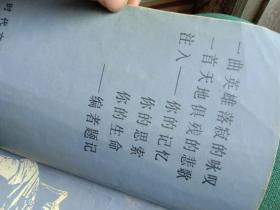 一曲英雄落寂的咏叹
一首天地俱残的悲歌
注入——你的记忆
你的思索
你的生命
——编者题记
时代